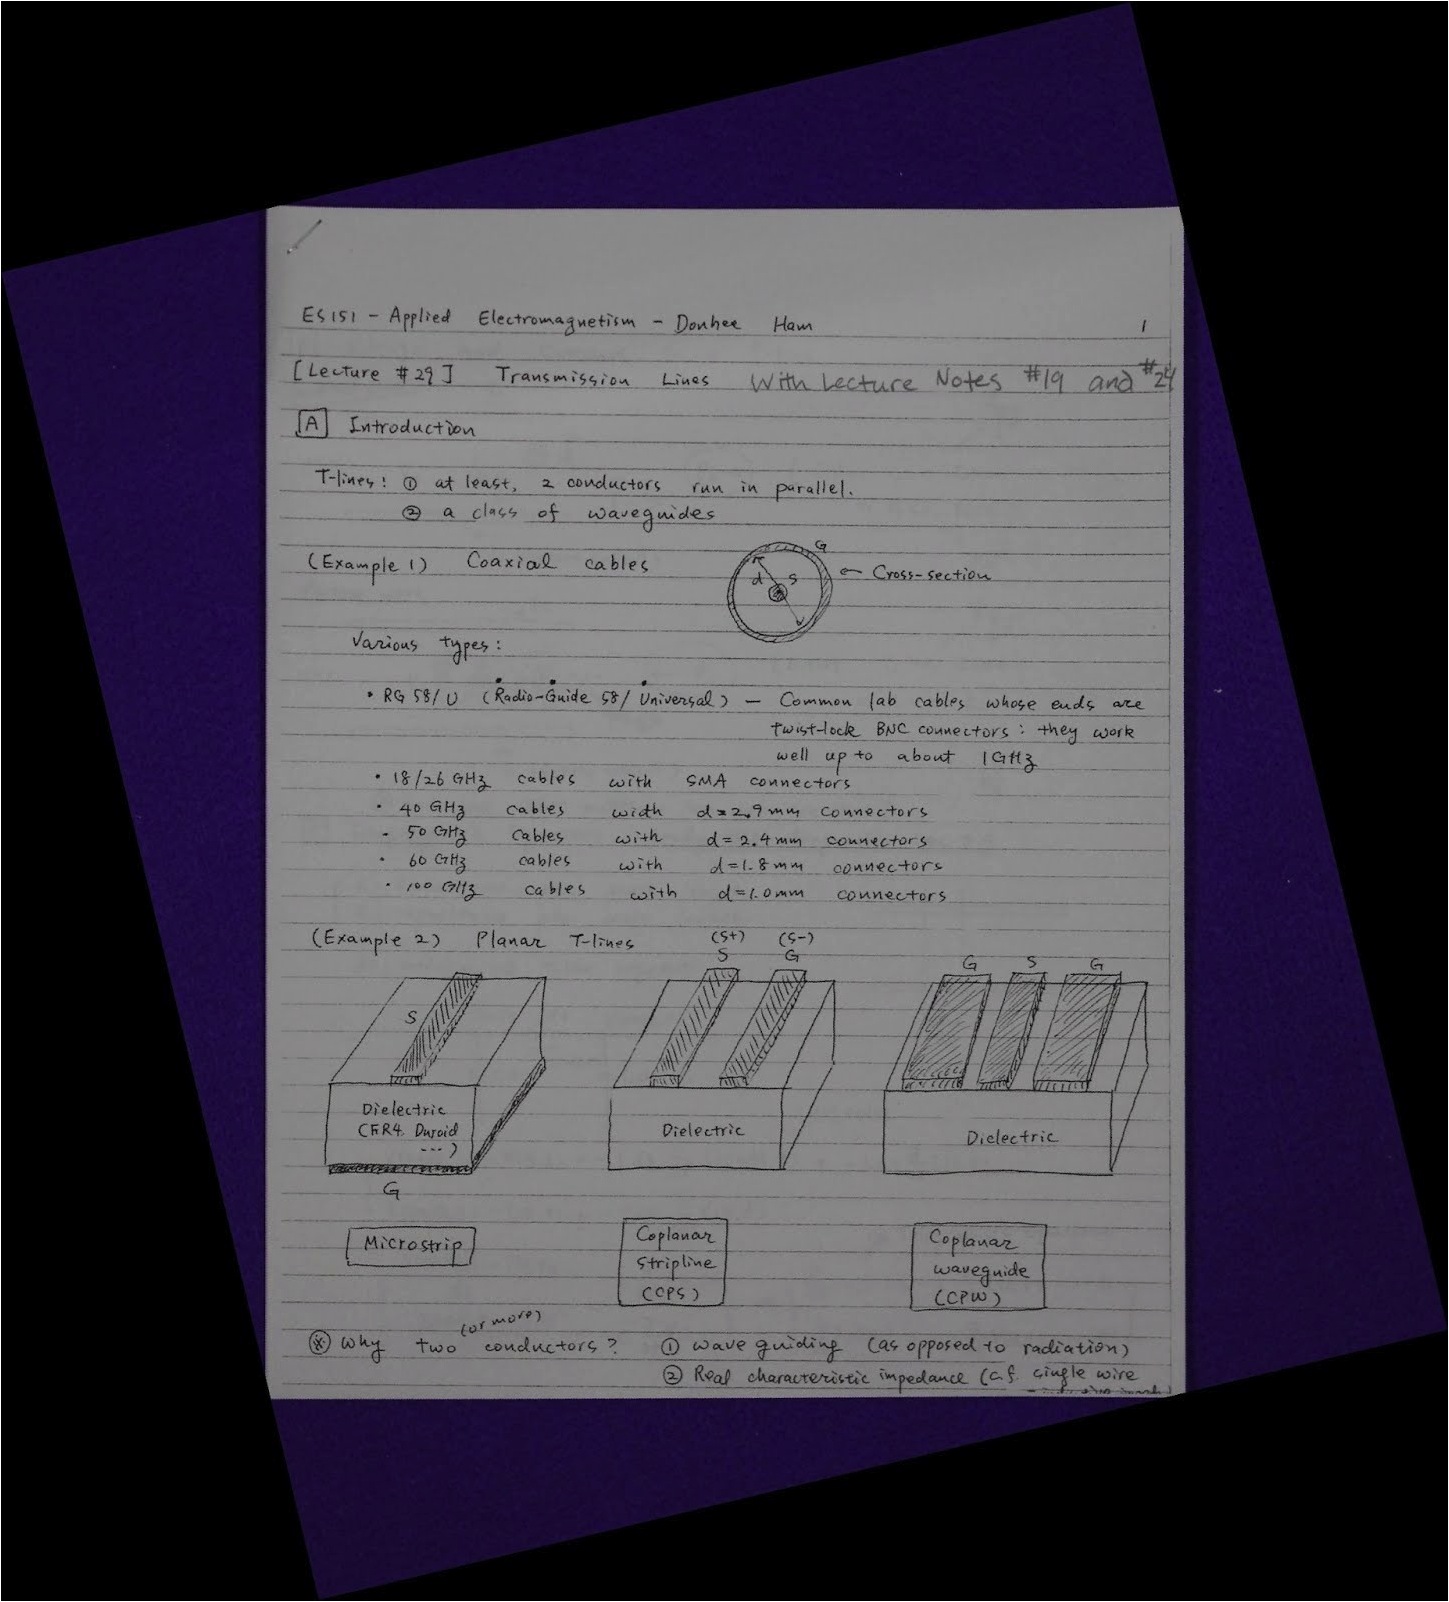 ES151 - Applied Electromagnetism - Donhee Ham 1
[Lecture #29] Transmission Lines With Lecture Notes #19 and #24
[A] Introduction
T-lines: ① at least, 2 conductors run in parallel.
② a class of waveguides
(Example 1) Coaxial cables
G
d S
← Cross-section
Various types:
• RG 58/U (Radio-Guide 58/Universal) — Common lab cables whose ends are
twist-lock BNC connectors: they work
well up to about 1GHz
• 18/26 GHz cables with SMA connectors
• 40 GHz cables width d=2.9mm connectors
• 50 GHz cables with d=2.4mm connectors
• 60 GHz cables with d=1.8mm connectors
• 100 GHz cables with d=1.0mm connectors
(Example 2) Planar T-lines
(S+) (S-)
S G
G S G
S
Dielectric
(FR4, Duroid
...)
G
Dielectric
Dielectric
Microstrip
Coplanar
Stripline
(CPS)
Coplanar
waveguide
(CPW)
(or more)
※ Why two conductors? ① wave guiding (as opposed to radiation)
② Real characteristic impedance (c.f. single wire